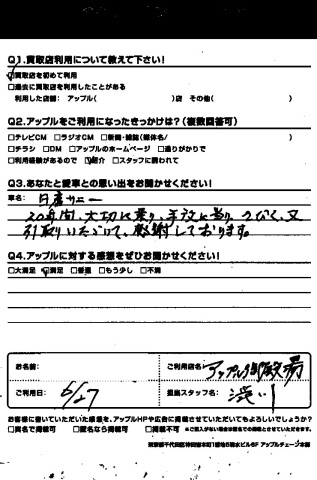 Q1.買取店利用について教えて下さい!
☑買取店を初めて利用
□過去に買取店を利用したことがある
利用した店舗: アップル( )店 その他( )
Q2.アップルをご利用になったきっかけは?(複数回答可)
□テレビCM □ラジオCM □新聞・雑誌(媒体名/ )
□チラシ □DM □アップルのホームページ □通りがかりで
□利用経験があるので ☑紹介 □スタッフに誘われて
Q3.あなたと愛車との思い出をお聞かせください!
車名: 日産サニー
20年間、大切に乗り、手放に当り、
引取りいただいて、感謝しております。
Q4.アップルに対する感想をぜひお聞かせください!
□大満足 ☑満足 □普通 □もう少し □不満
お名前:
ご利用店名: アップル御殿場
ご利用日: 6/27
担当スタッフ名: 渋川
お客様に書いていただいた感想を、アップルHPや広告に掲載させていただいてもよろしいでしょうか?
□実名で掲載可 □匿名なら掲載可 □掲載不可 ※ご記入がない場合は匿名での掲載とさせていただきます。